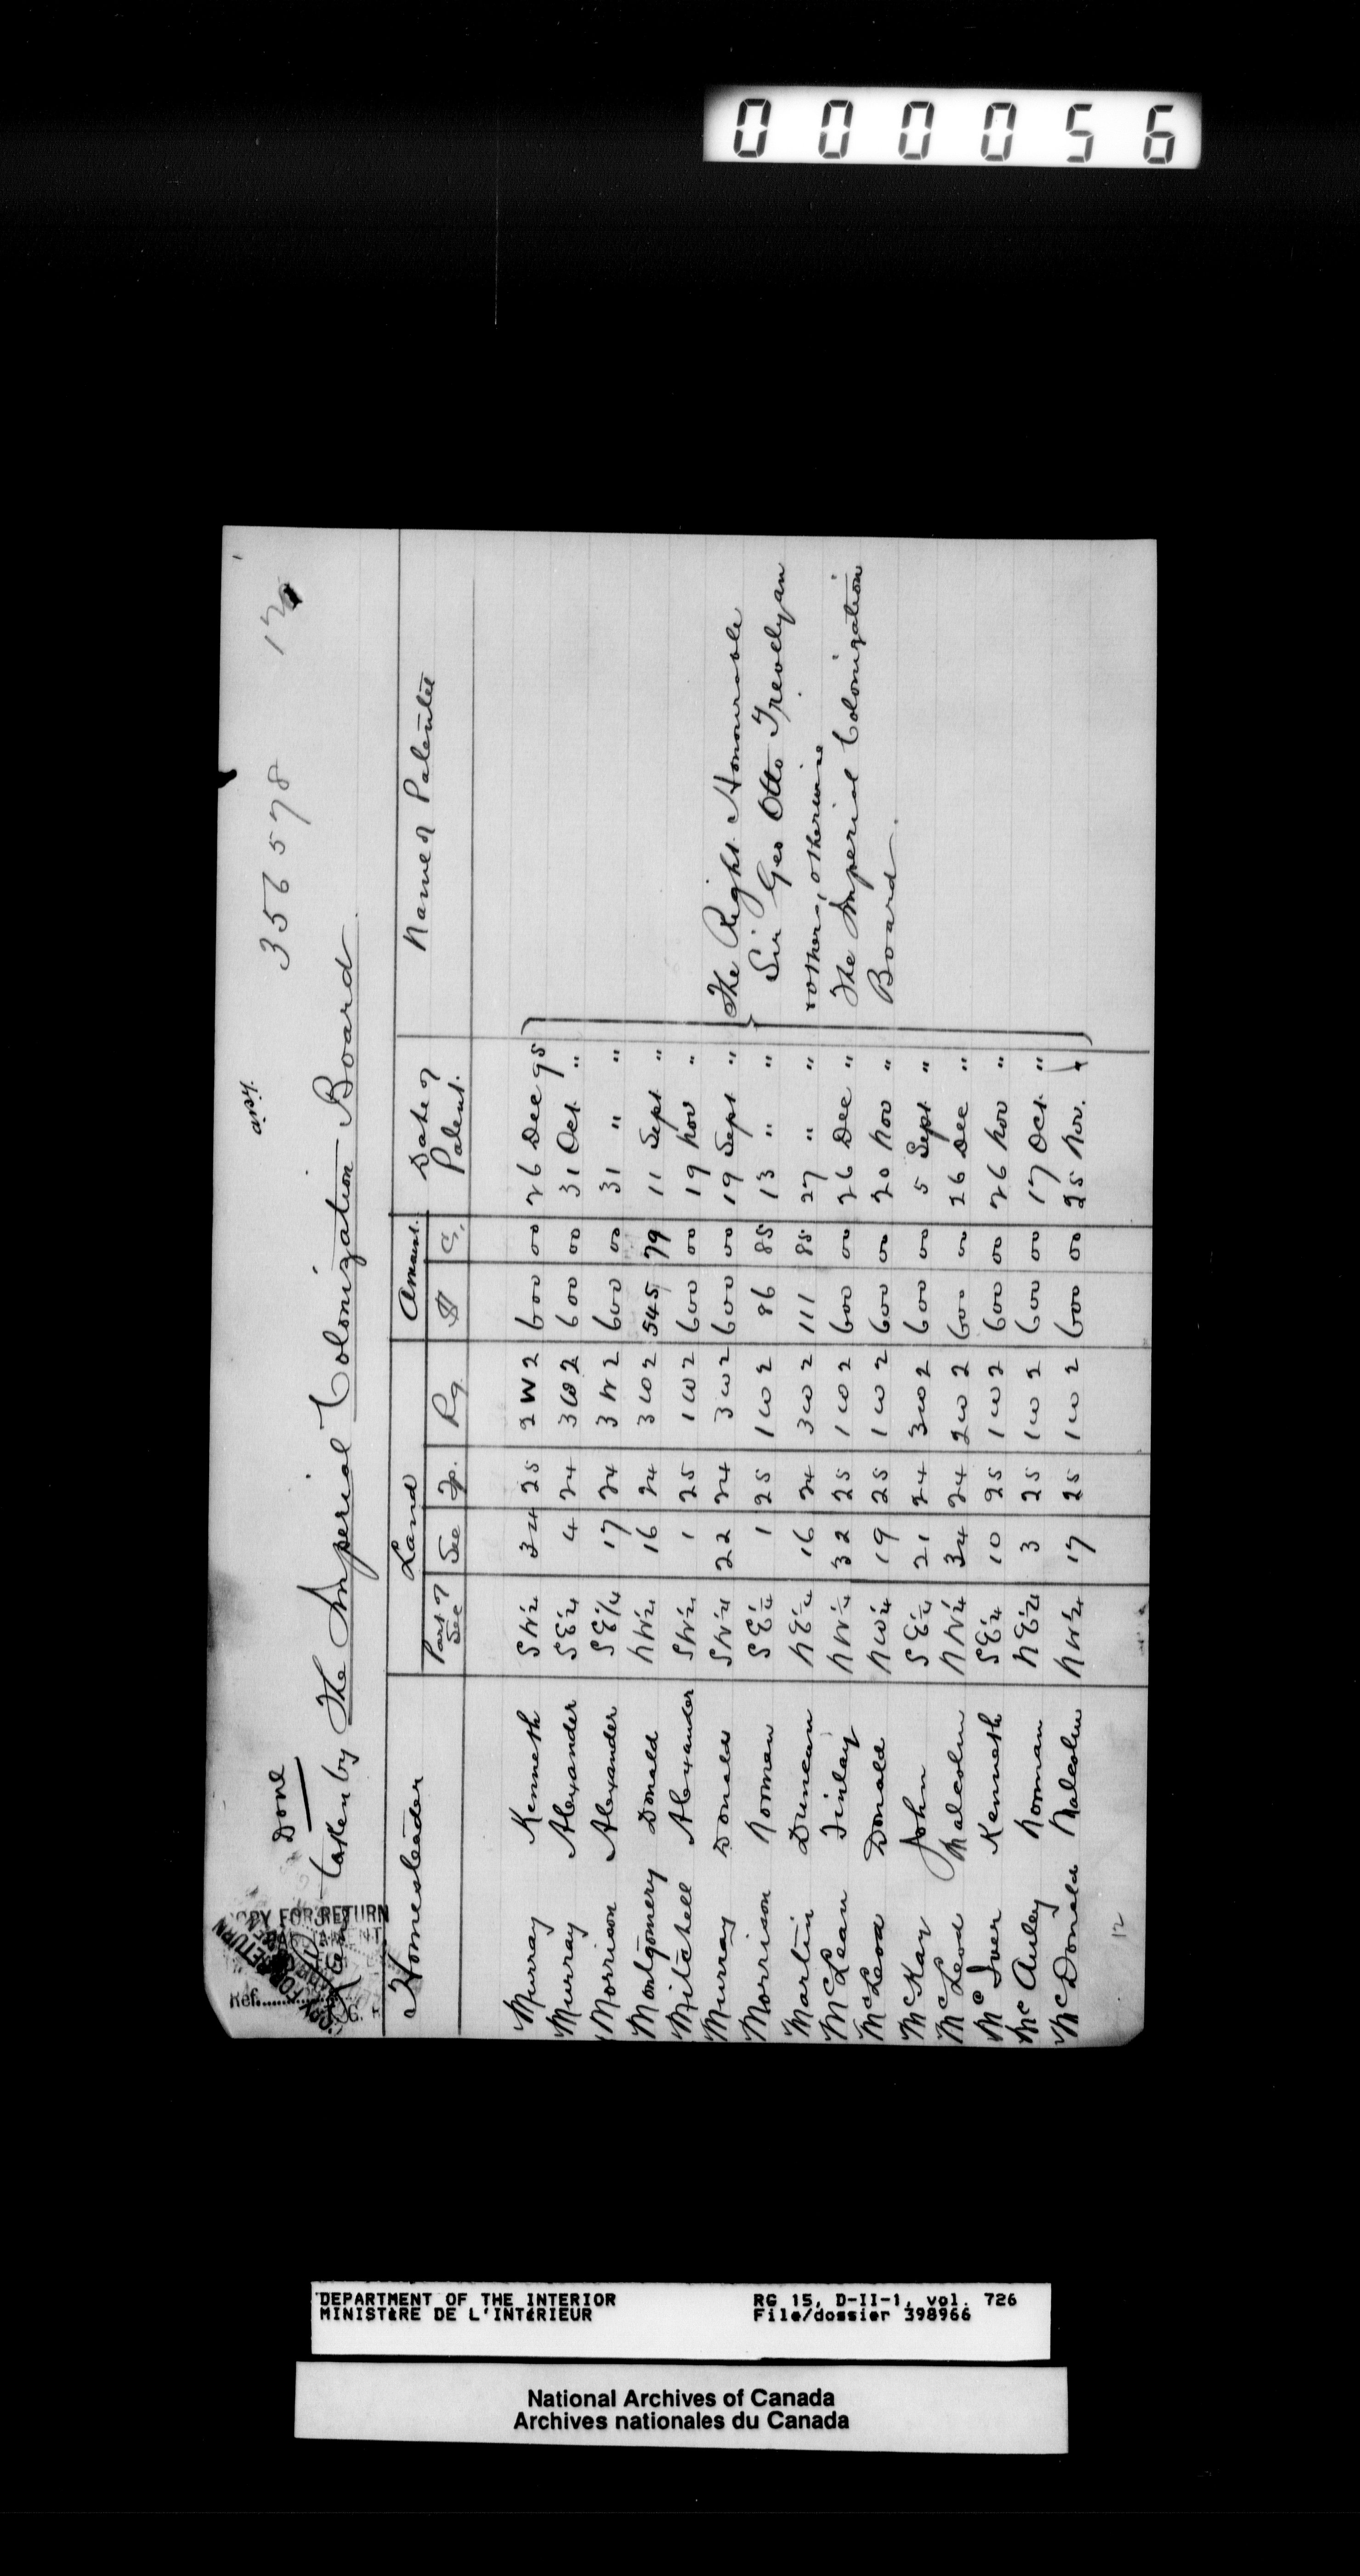 000056
any.
356578
Done
COPY FOR RETURN
Ref.
taken by The Imperial Colonization Board
Homesteader Land Amount. Date of Patent. Name of Patentee
Part of Sec Sec Tp. Rg. $ C.
Murray Kenneth SW¼ 34 25 2 W 2 600 00 26 Dec 95
Murray Alexander SE¼ 4 24 3 W 2 600 00 31 Oct. "
Morrison Alexander SE¼ 17 24 3 W 2 600 00 31 " "
Montgomery Donald NW¼ 16 24 3 W 2 545 79 11 Sept "
Mitchell Alexander SW¼ 1 25 1 W 2 600 00 19 Nov "
Murray Donald SW¼ 22 24 3 W 2 600 00 19 Sept "
Morrison Norman SE¼ 1 25 1 W 2 86 85 13 " "
Martin Duncan NE¼ 16 24 3 W 2 111 85 27 " "
McLean Finlay NW¼ 32 25 1 W 2 600 00 26 Dec "
McLeod Donald NW¼ 19 25 1 W 2 600 00 20 Nov "
McKay John SE¼ 21 24 3 W 2 600 00 5 Sept. "
McLeod Malcolm NW¼ 34 24 2 W 2 600 00 26 Dec "
McIver Kenneth SE¼ 10 25 1 W 2 600 00 26 Nov "
McAuley Norman NE¼ 3 25 1 W 2 600 00 17 Oct. "
McDonald Malcolm NW¼ 17 25 1 W 2 600 00 25 Nov. "
The Right Honourable
Sir Geo Otto Trevelyan
& others, otherwise
The Imperial Colonization
Board.
12
DEPARTMENT OF THE INTERIOR RG 15, D-II-1, vol. 726
MINISTÈRE DE L'INTÉRIEUR File/dossier 398966
National Archives of Canada
Archives nationales du Canada